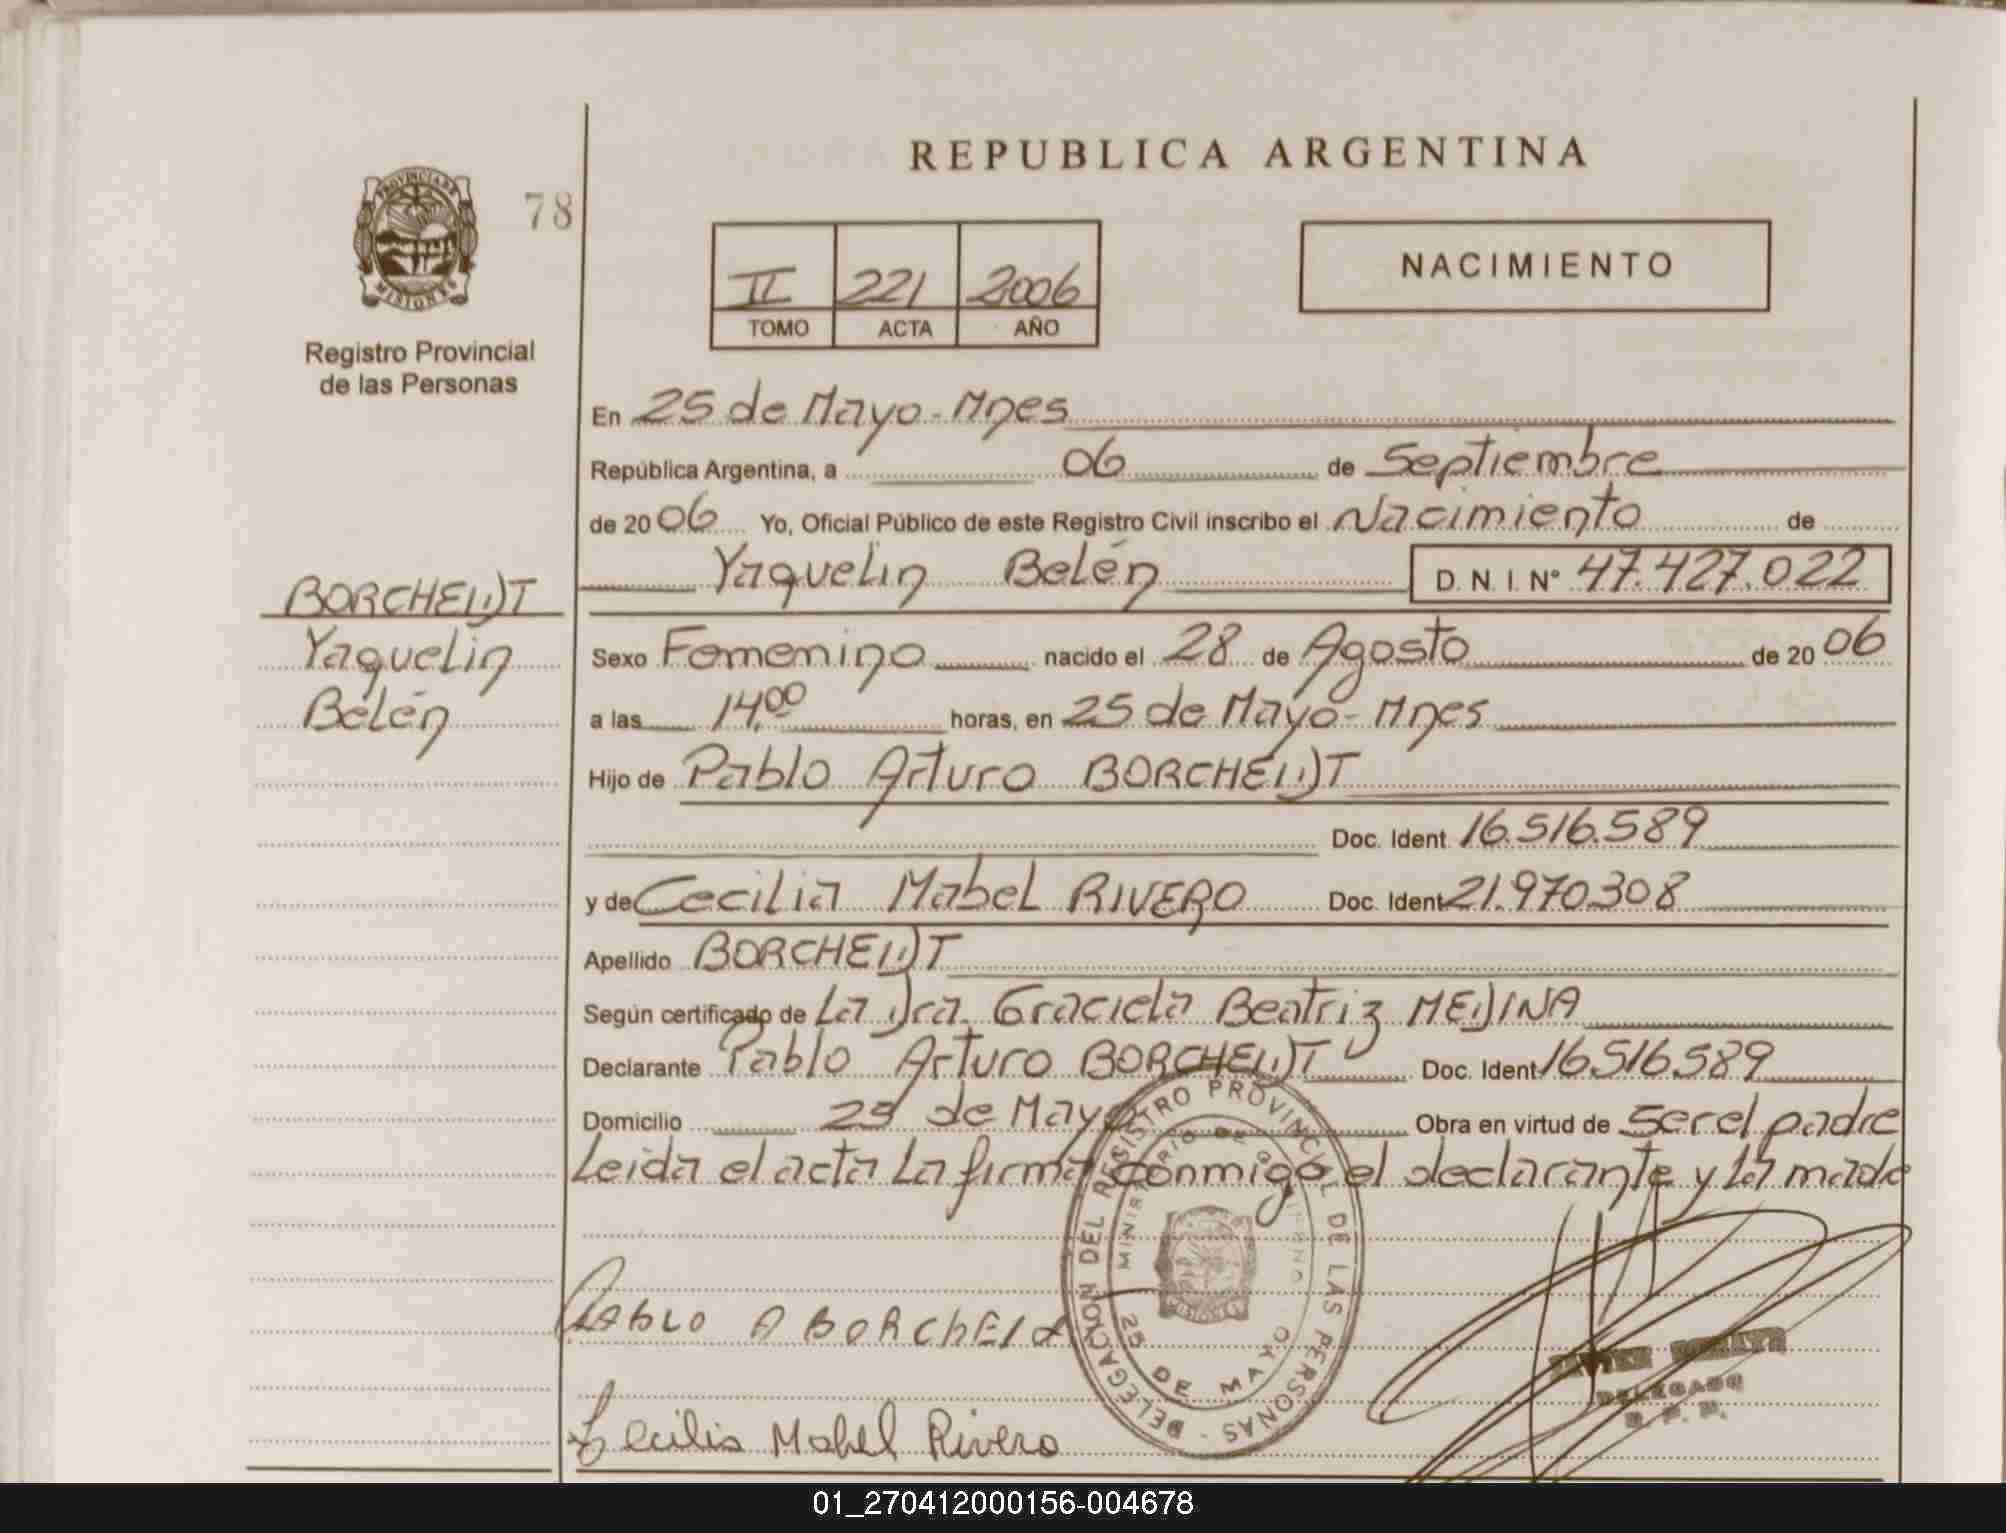 REPUBLICA ARGENTINA
PROVINCIA DE
MISIONES
78
Registro Provincial
de las Personas
II 221 2006
TOMO ACTA AÑO
NACIMIENTO
En 25 de Mayo - Mnes
República Argentina, a 06 de Septiembre
de 2006 Yo, Oficial Público de este Registro Civil inscribo el Nacimiento de
Yaquelin Belén D. N. I. Nº 47.427.022
BORCHEIDT
Yaquelin
Belén
Sexo Femenino nacido el 28 de Agosto de 2006
a las 14,00 horas, en 25 de Mayo - Mnes
Hijo de Pablo Arturo BORCHEIDT
Doc. Ident. 16.516.589
y de Cecilia Mabel RIVERO Doc. Ident 21.970.308
Apellido BORCHEIDT
Según certificado de La Dra. Graciela Beatriz MEDINA
Declarante Pablo Arturo BORCHEIDT Doc. Ident 16.516.589
Domicilio 25 de Mayo Obra en virtud de ser el padre
Leida el acta La firma conmigo el declarante y La madre
PABLO A BORCHEID
DELEGACION DEL REGISTRO PROVINCIAL DE LAS PERSONAS -
MINISTERIO DE GOBIERNO
MISIONES
25 DE MAYO
DELEGADO
Cecilia Mabel Rivero
01_270412000156-004678